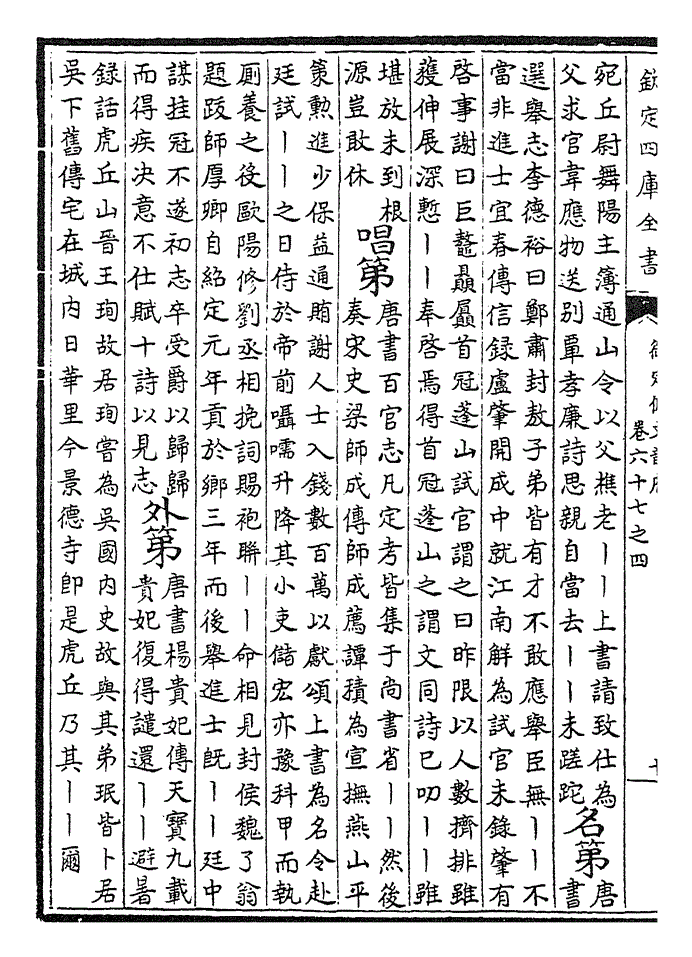 欽定四庫全書
卷六十七之四
宛丘尉舞陽主簿通山令以父樵老丨丨上書請致仕為
父求官韋應物送别覃孝廉詩思親自當去丨丨未蹉跎
名第
唐
書
選舉志李德裕曰鄭肅封敖子弟皆有才不敢應舉臣無丨丨不
當非進士宜春傳信録盧肇開成中就江南解為試官未錄肇有
啓事謝曰巨鼇贔屭首冠蓬山試官謂之曰昨限以人數擠排雖
獲伸展深慙丨丨奉啓焉得首冠蓬山之謂文同詩已叨丨丨雖
堪放未到根
源豈敢休
唱第
唐書百官志凡定考皆集于尚書省丨丨然後
奏宋史梁師成傳師成薦譚稹為宣撫燕山平
策勲進少保益通賄謝人士入錢數百萬以獻頌上書為名令赴
廷試丨丨之日侍於帝前囁嚅升降其小吏儲宏亦豫科甲而執
厠養之役歐陽修劉丞相挽詞賜袍聯丨丨命相見封侯魏了翁
題跋師厚卿自紹定元年貢於鄉三年而後舉進士旣丨丨廷中
謀挂冠不遂初志卒受爵以歸歸
而得疾决意不仕賦十詩以見志
外第
唐書楊貴妃傳天寳九載
貴妃復得譴還丨丨避暑
録話虎丘山晉王珣故居珣嘗為吳國内史故與其弟珉皆卜居
吳下舊傳宅在城内日華里今景德寺卽是虎丘乃其丨丨爾